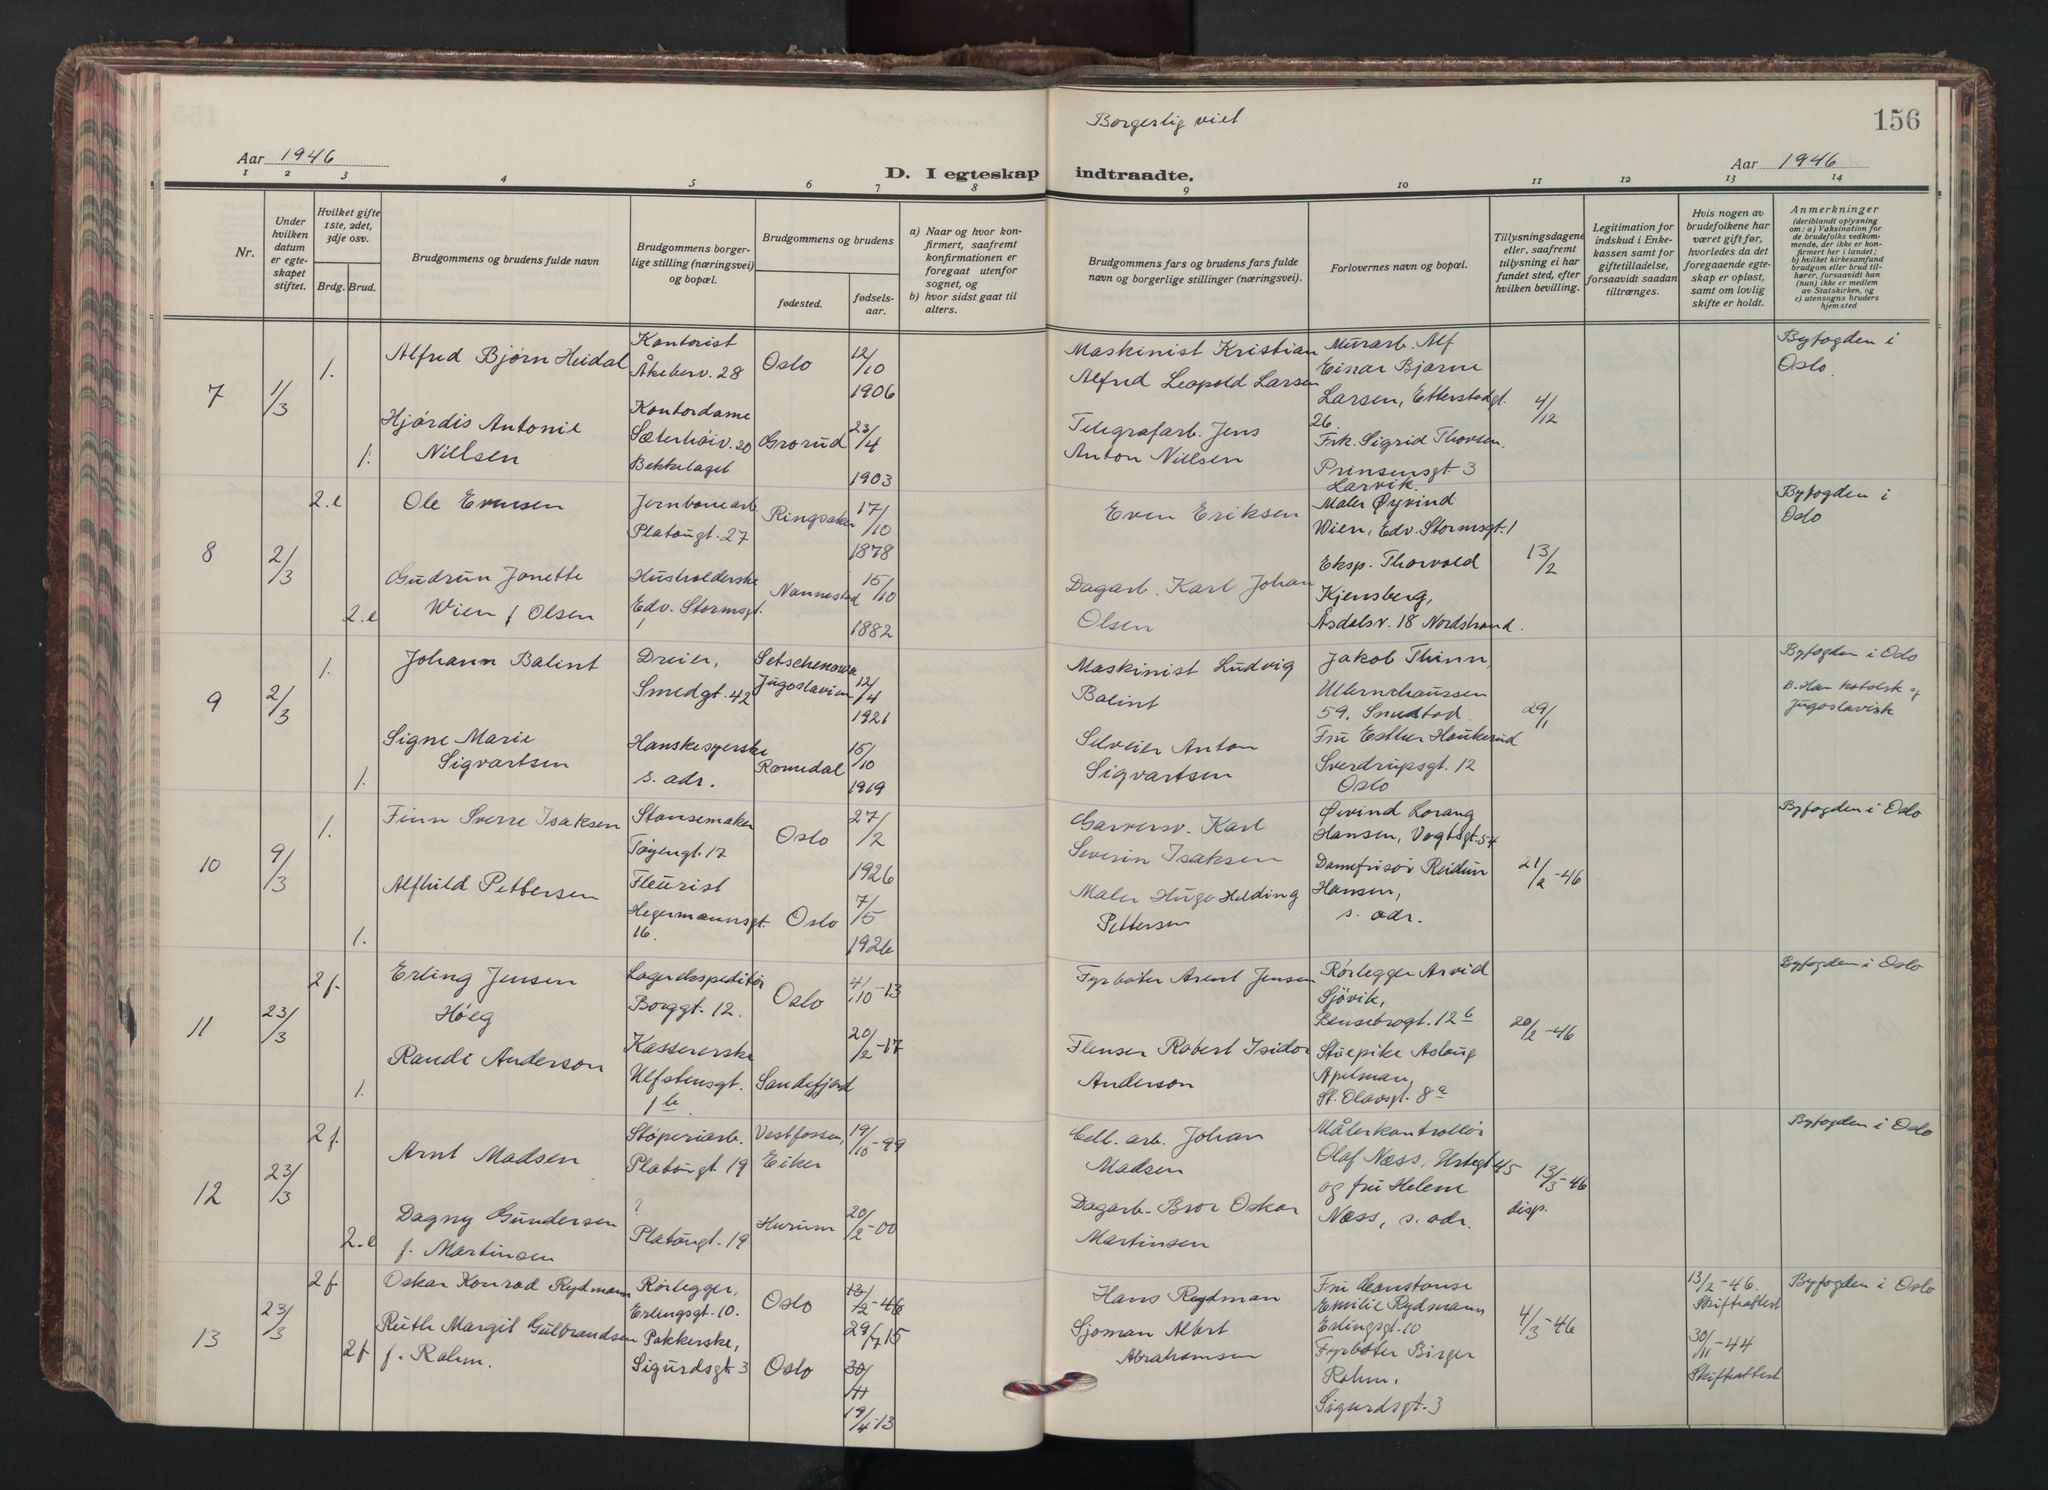 Borgerlig viet
156
Aar 1946
D. I egteskap indtraadte.
Aar 1946
1 2 3 4 5 6 7 8 9 10 11 12 13 14
Nr.
Under hvilken datum er egteskapet stiftet.
Hvilket gifte 1ste, 2det, 3dje osv.
Brdg. Brud.
Brudgommens og brudens fulde navn
Brudgommens borgerlige stilling (næringsvei) og bopæl.
Brudgommens og brudens
fødested.
fødselsaar.
a) Naar og hvor konfirmert, saafremt konfirmationen er foregaat utenfor sognet, og
b) hvor sidst gaat til alters.
Brudgommens fars og brudens fars fulde navn og borgerlige stillinger (næringsvei).
Forlovernes navn og bopæl.
Tillysningsdagene eller, saafremt tillysning ei har fundet sted, efter hvilken bevilling.
Legitimation for indskud i Enkekassen samt for giftetilladelse, forsaavidt saadan tiltrænges.
Hvis nogen av brudefolkene har været gift før, hvorledes da det foregaaende egteskap er opløst, samt om lovlig skifte er holdt.
Anmerkninger
(deriblandt oplysning om: a) Vaksination for de brudefolks vedkommende, der ikke er konfirmert her i landet;
b) hvilket kirkesamfund brudgom eller brud tilhører, forsaavidt han (hun) ikke er medlem av Statskirken, og
c) utensogns bruders hjemsted
7
1/3
1.
Alfred Bjørn Heidal
Kontorist
Åkeberv. 28
Oslo
12/10
1906
Maskinist Kristian
Alfred Leopold Larsen
Murarb. Alf
Einar Bjarne
Larsen, Etterstadgt.
26.
4/12
Byfogden i
Oslo.
1.
Hjørdis Antonie
Nilsen
Kontordame
Sæterhøiv. 20
Bekkelaget
Grorud
23/4
1903
Telegrafarb. Jens
Anton Nilsen
Frk. Sigrid Thorsen.
Prinsensgt. 3
Larvik.
8
2/3
2.e
Ole Evensen
Jernbanearb.
Platougt. 27
Ringsaker
17/10
1878
Even Eriksen
Maler Øyvind
Wien, Edv. Stormsgt. 1
13/2
Byfogden i
Oslo
2.e
Gudrun Janette
Wien f Olsen
Husholderske
Edv. Stormsgt.
1
Nannestad
15/10
1882
Dagarb. Karl Johan
Olsen
Eksp. Thorvald
Kjensberg,
Åsdalsv. 18 Nordstrand.
9
2/3
1.
Johann Balint
Dreier,
Smedgt. 42
Setschenowa
Jugoslavien
12/4
1921
Maskinist Ludvig
Balint
Jakob Thinn,
Ullernchaussen
59, Smestad.
29/1
Byfogden i Oslo
B. Han katolsk og
jugoslavisk
1.
Signe Marie
Sigvartsen
Hanskesyerske
s. adr.
Romedal
15/10
1919
Selveier Anton
Sigvartsen
Fru Esther Haukerud
Sverdrupsgt. 12
Oslo
10
9/3
1.
Finn Sverre Isaksen
Stansemaker
Tøyengt. 17
Oslo
27/2
1926
Garversv. Karl
Severin Isaksen
Øivind Lorang
Hansen, Vogtsgt. 54
21/2-46
Byfogden i Oslo
1.
Alfhild Pettersen
Fleurist
Hegermannsgt.
16.
Oslo
7/5
1926
Maler Hugo Helding
Pettersen
Damefrisør Reidun
Hansen,
s. adr.
11
23/3
2f.
Erling Jensen
Høeg
Lagerekspeditør
Borggt. 12.
Oslo
4/10-13
Fyrbøter Arent Jensen
Rørlegger Arvid
Sjövik,
Bensebrogt. 12 b
20/2-46
Byfogden i Oslo
1.
Randi Anderson
Kassererske
Ulfstensgt.
1 b
Sandefjord
20/2-17
Flenser Robert Isidor
Anderson
Stuepike Aslaug
Apelman,
St. Olavsgt. 8 a
12
23/3
2f.
Arnt Madsen
Støperiarb.
Platougt 19
Vestfossen,
Eiker
19/10-99
Cell. arb. Johan
Madsen
Målerkontrollør
Olaf Næss, Urtegt 45
13/3-46
disp.
Byfogden i Oslo
2.e
Dagny Gundersen
f. Martinsen
?
Platougt. 19
Hurum
20/2-00
Dagarb. Bror Oskar
Martinsen
og fru Helene
Næss, s. adr.
13
23/3
2f
Oskar Konrad Rydmann
Rørlegger,
Erlingsgt. 10.
Oslo
13/2-46
29/7 15
Hans Rydman
Fru Constanse
Emilie Rydmann
Erlingsgt. 10
4/3-46
13/2-46.
Skifteattest
Byfogden i Oslo
2f
Ruth Margit Gulbrandsen
f. Rahm.
Pakkerske,
Sigurdsgt. 3
Oslo
30/11
19/4-13
Sjøman Albert
Abrahamsen
Fyrbøter Birger
Rahm,
Sigurdsgt. 3
30/11-44
Skifteattest